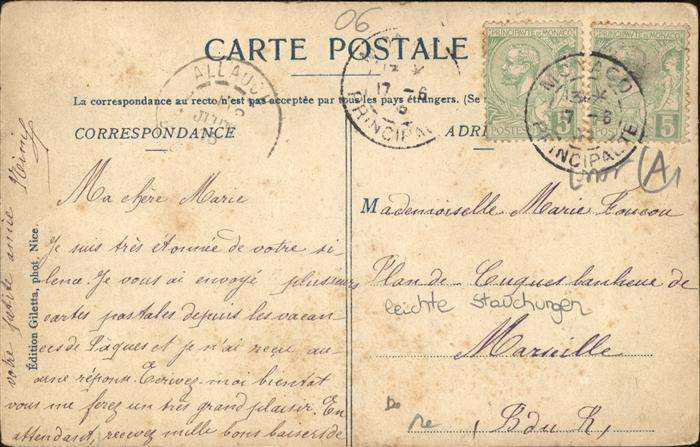 06
CARTE POSTALE
La correspondance au recto n'est pas acceptée par tous les pays étrangers. (Se
CORRESPONDANCE
ADRE
PRINCIPAUTÉ DE MONACO
POSTES 5
PRINCIPAUTÉ DE MONACO
POSTES 5
ALLAUCH
17 - 6
PRINCIPAUTE
MONACO
17 - 6
PRINCIPAUTE
A
Ma chère Marie
Je suis très étonnée de votre si-
lence. Je vous ai envoyé plusieurs
cartes postales depuis les vacan
ces de Pâques et je n'ai reçu au-
cune réponse. Ecrivez-moi bientôt
vous me ferez un très grand plaisir. En
attendant, recevez mille bons baisers de
votre petite amie
Édition Giletta, phot. Nice
Mademoiselle Marie
Plan de Cuques banlieue de
leichte Stauchungen
Marseille
(B du R)